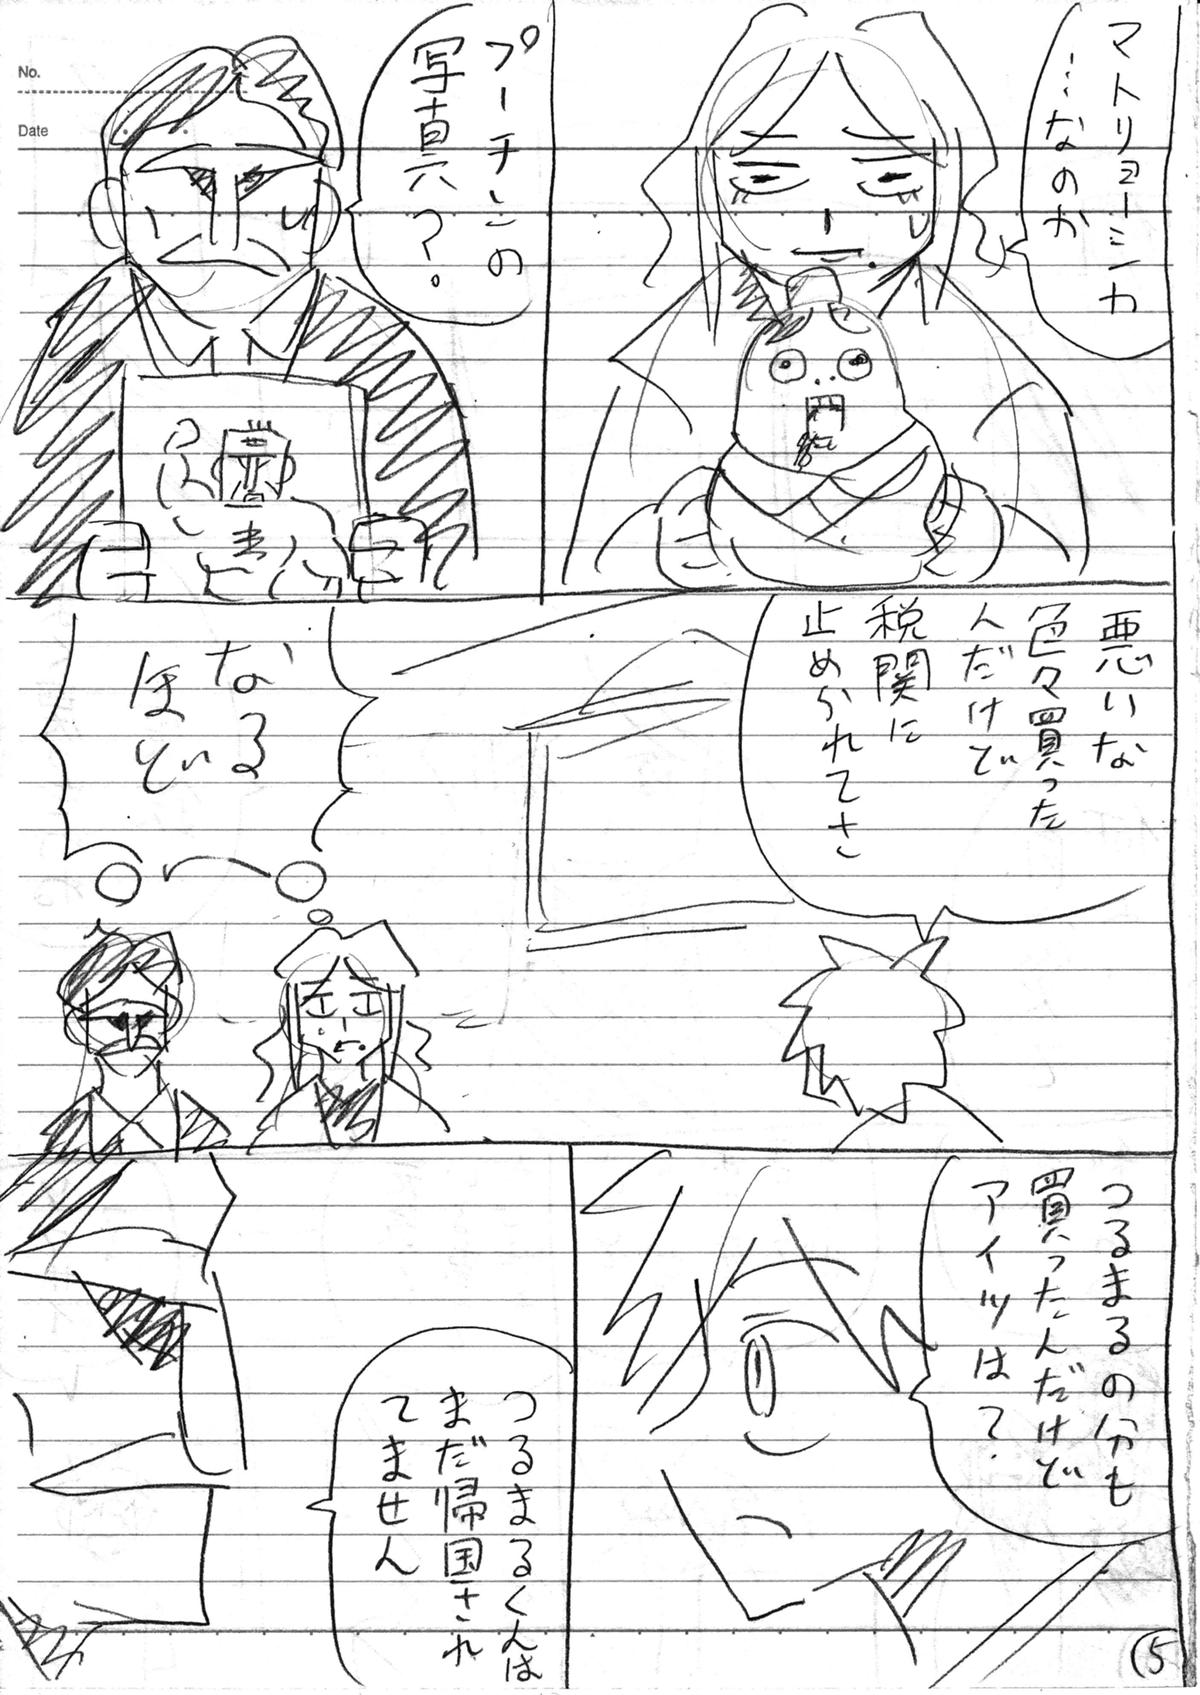 マトリョーシカ
…なのか
プーチンの
写真?
No.
Date
悪いな
色々買った
んだけど
税関に
止められてさ
なる
ほど
つるまるの分も
買ったんだけど
アイツは?
つるまるくんは
まだ帰国され
てません
5